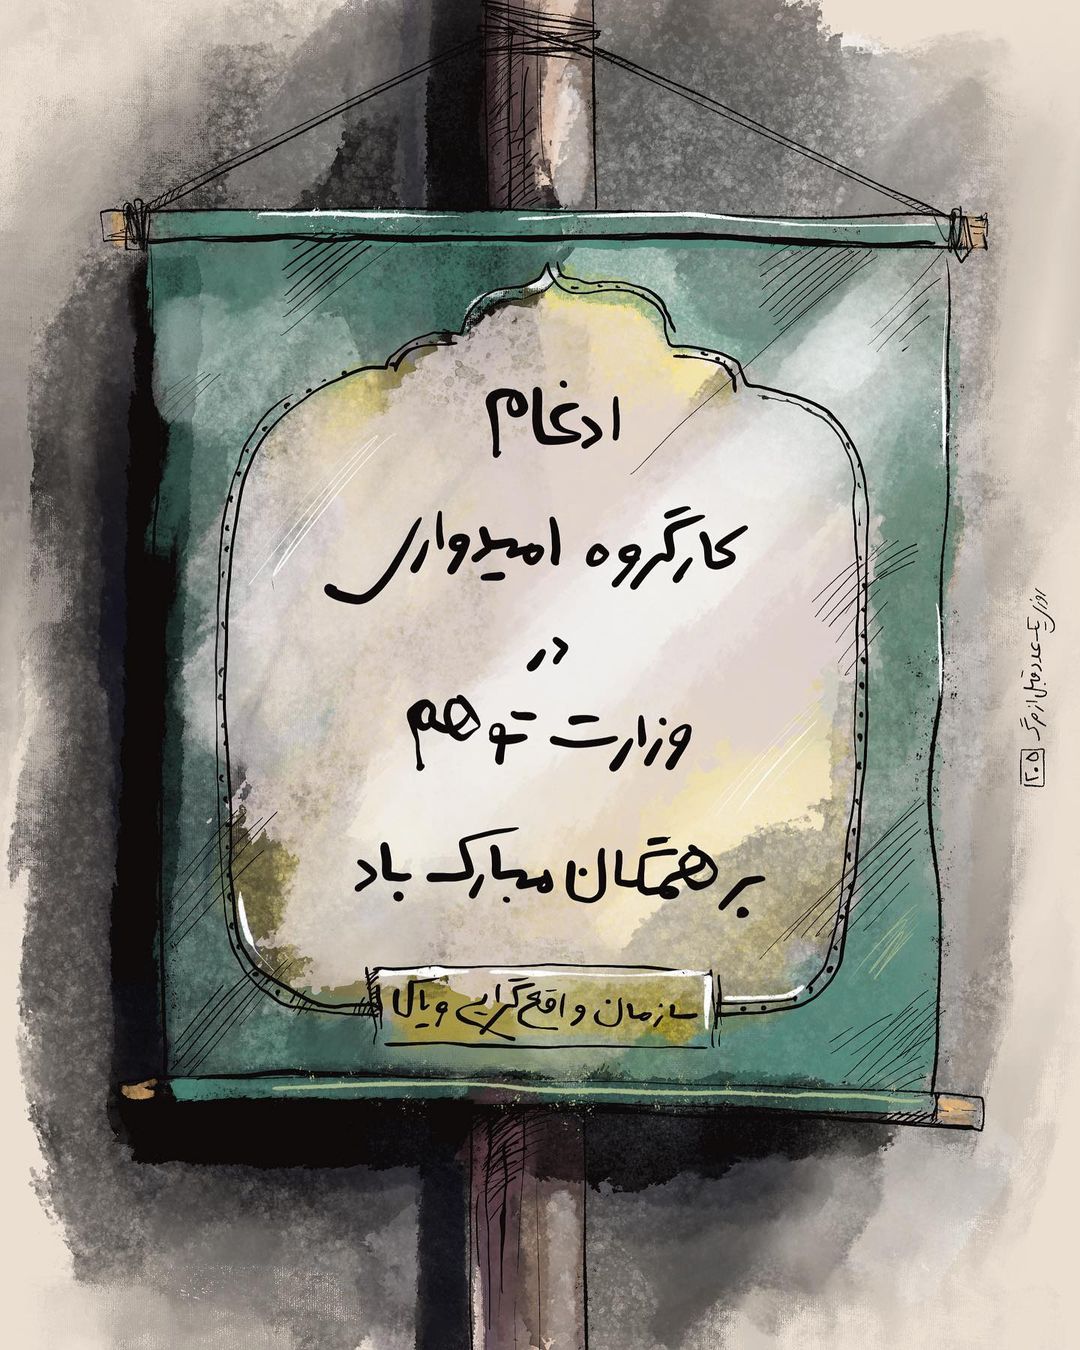 ادغام
کارگروه امیدواری
در
وزارت توهم
بر همگان مبارک باد
سازمان واقع‌گرایی ویاک
روزی یک عدد قبل از مرگ
۲۰۵